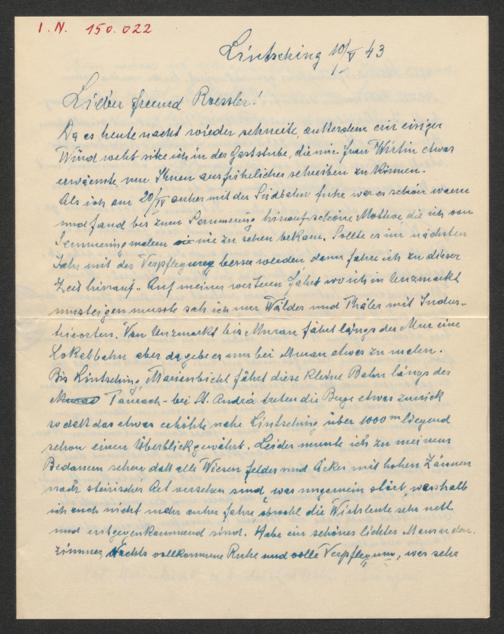 I. N. 150.022
Lintsching 10/V 43
Lieber Freund Roessler!
Da es heute nacht wieder schneite, außerdem ein eisiger
Wind weht sitze ich in der Gaststube, die mir Frau Wirtin etwas
erwärmte, um Ihnen ausführlicher schreiben zu können.
Als ich am 20/IV unten mit der Südbahn fuhr war es schön warm
und fand bis zum Semmering hinauf schöne Motive die ich vom
Semmering malen nie zu sehen bekam. Sollte es im nächsten
Jahr mit der Verpflegung besser werden dann fahre ich zu dieser
Zeit hinauf. Auf meiner weiteren Fahrt wo ich in Unzmarkt
umsteigen musste sah ich nur Wälder und Thäler mit Indus-
trieorten. Von Unzmarkt bis Murau fährt längs der Mur eine
Lokalbahn aber da gebe es nur bei Murau etwas zu malen.
Bis Lintsching, Mariapfarr fährt diese kleine Bahn längs des
Taurach - bei St. Andrä treten die Berge etwas zurück
so daß das etwas erhöhte nahe Lintsching über 1000 m liegend
schon einen Überblick gewährt. Leider musste ich zu meinem
Bedauern sehen daß alle Wiesen felder und Äcker mit hohen Zäunen
nach steirischer Art versehen sind, was ungemein stört, weshalb
ich auch nicht mehr fahre obwohl die Wirtsleute sehr nett
und entgegenkommend sind. Habe ein schönes lichtes
Zimmer, Nachts vollkommene Ruhe und volle Verpflegung, was sehr